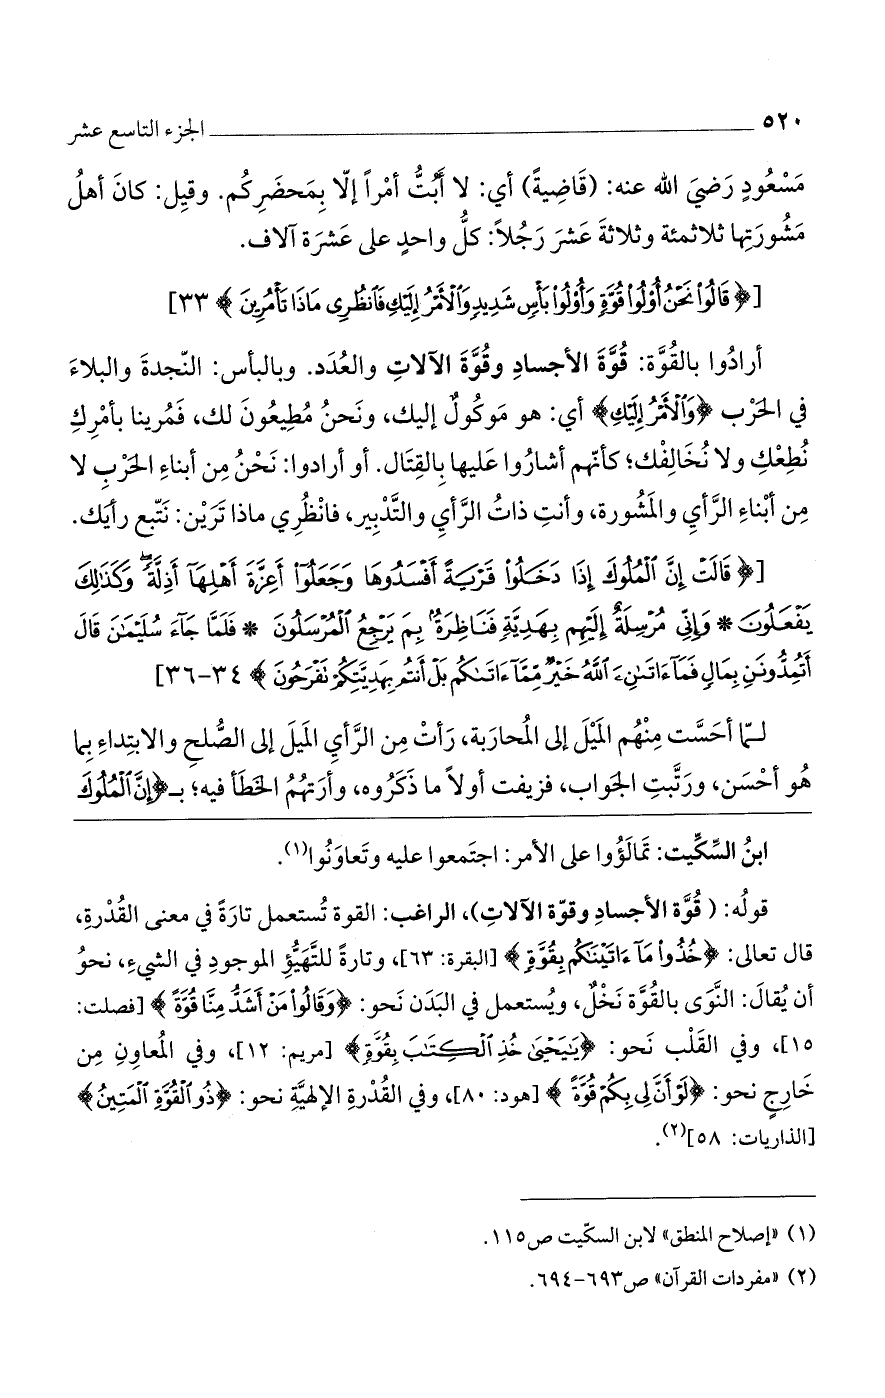 ٥٢٠ الجزء التاسع عشر
مَسْعُودٍ رَضيَ الله عنه: (قَاضِيةً) أي: لا أَبُتُّ أمْراً إلّا بِمَحضَرِكُم. وقيِل: كانَ أهلُ
مَشُورَتِها ثلاثمئة وثلاثةَ عَشرَ رَجُلاً: كلُّ واحدٍ على عَشرَة آلاف.
[﴿ قَالُوا۟ نَحْنُ أُو۟لُوا۟ قُوَّةٍ وَأُو۟لُوا۟ بَأْسٍ شَدِيدٍ وَٱلْأَمْرُ إِلَيْكِ فَٱنظُرِى مَاذَا تَأْمُرِينَ ﴾ ٣٣]
أرادُوا بالقُوَّة: قُوَّةَ الأجسادِ وقُوَّةَ الآلاتِ والعُدَد. وبالبأس: النّجدةَ والبلاءَ
في الحَرْب ﴿وَٱلْأَمْرُ إِلَيْكِ﴾ أي: هو مَوكُولٌ إليك، ونَحنُ مُطِيعُونَ لك، فَمُرينا بأمْرِكِ
نُطِعْكِ ولا نُخَالِفْك؛ كأنّهم أشارُوا عَليها بالقِتَال. أو أرادوا: نَحْنُ مِن أبناءِ الحَرْبِ لا
مِن أبْناءِ الرَّأي والمَشُورة، وأنتِ ذاتُ الرَّأيِ والتَّدْبِير، فانْظُرِي ماذا تَرَيْن: نَتّبع رأيَك.
[﴿ قَالَتْ إِنَّ ٱلْمُلُوكَ إِذَا دَخَلُوا۟ قَرْيَةً أَفْسَدُوهَا وَجَعَلُوٓا۟ أَعِزَّةَ أَهْلِهَآ أَذِلَّةً ۖ وَكَذَٰلِكَ
يَفْعَلُونَ * وَإِنِّى مُرْسِلَةٌ إِلَيْهِم بِهَدِيَّةٍ فَنَاظِرَةٌۢ بِمَ يَرْجِعُ ٱلْمُرْسَلُونَ * فَلَمَّا جَآءَ سُلَيْمَٰنَ قَالَ
أَتُمِدُّونَنِ بِمَالٍ فَمَآ ءَاتَىٰنِۦَ ٱللَّهُ خَيْرٌ مِّمَّآ ءَاتَىٰكُم بَلْ أَنتُم بِهَدِيَّتِكُمْ نَفْرَحُونَ ﴾ ٣٤-٣٦]
لـمّا أحَسَّت مِنْهُم المَيْلَ إلى المُحاربة، رَأتْ مِن الرَّأيِ المَيلَ إلى الصُّلحِ والابتِداءِ بِما
هُو أحْسَن، ورَتَّبتِ الجَواب، فزيفت أولاً ما ذكَرُوه، وأرَتهُمُ الخَطَأ فيه؛ بـ﴿إِنَّ ٱلْمُلُوكَ
ابنُ السِّكِّيت: تمالَؤُوا على الأمر: اجتَمعوا عليه وتَعاوَنُوا(١).
قولُه: ( قُوَّة الأجسادِ وقوّة الآلاتِ)، الراغب: القوة تُستعمل تارَةً في معنى القُدْرةِ،
قال تعالى: ﴿خُذُوا۟ مَآ ءَاتَيْنَٰكُم بِقُوَّةٍ ﴾ [البقرة: ٦٣]، وتارةً للتَّهَيُّؤِ الموجودِ في الشيءِ، نحوُ
أن يُقالَ: النَّوَى بالقُوَّة نَخْلٌ، ويُستعمل في البَدَن نَحو: ﴿وَقَالُوا۟ مَنْ أَشَدُّ مِنَّا قُوَّةً ﴾ [فصلت:
١٥]، وفي القَلْب نَحو: ﴿يَٰيَحْيَىٰ خُذِ ٱلْكِتَٰبَ بِقُوَّةٍ﴾ [مريم: ١٢]، وفي المُعاوِنِ مِن
خَارِجٍ نحو: ﴿لَوْ أَنَّ لِى بِكُمْ قُوَّةً ﴾ [هود: ٨٠]، وفي القُدْرةِ الإلهيَّةِ نحو: ﴿ذُو ٱلْقُوَّةِ ٱلْمَتِينُ﴾
[الذاريات: ٥٨](٢).
(١) «إصلاح المنطق» لابن السكّيت ص١١٥.
(٢) «مفردات القرآن» ص٦٩٣-٦٩٤.